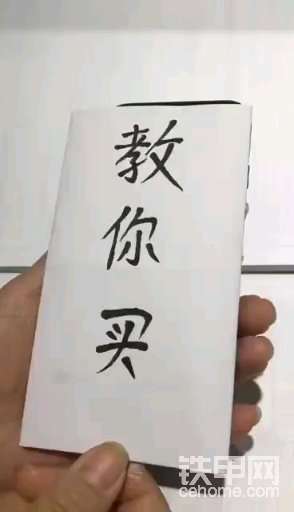 教
你
买
铁甲网
cehome.com